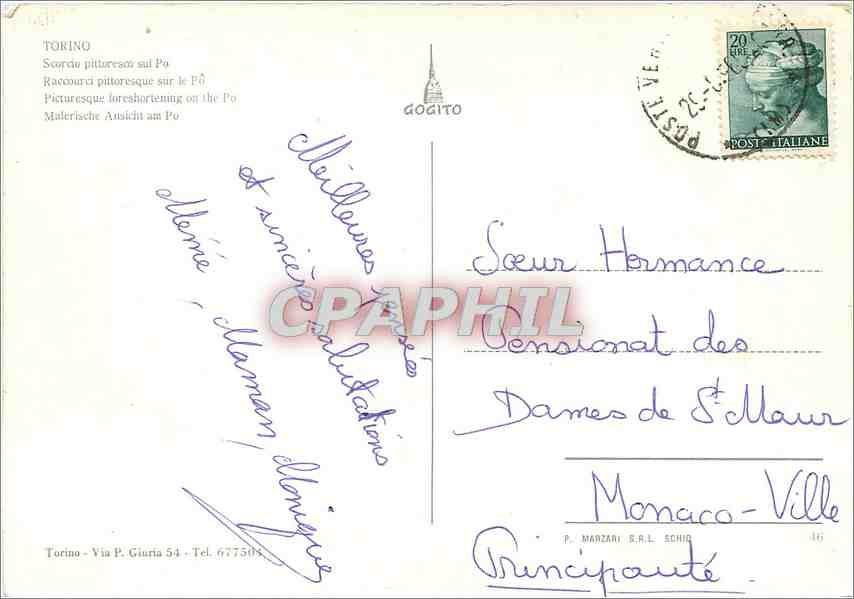 TORINO
Scorcio pittoresco sul Po
Raccourci pittoresque sur le Pô
Picturesque foreshortening on the Po
Malerische Ansicht am Po
GOGITO
POSTE
20
LIRE
POSTE ITALIANE
Meilleures pensées
et sincères salutations
Mémé, Maman, Monique
CPAPHIL
Sœur Hermance
Pensionat des
Dames de St Maur
Monaco-Ville
Principauté.
P. MARZARI S.R.L. SCHIO
46
Torino - Via P. Giuria 54 - Tel. 677504